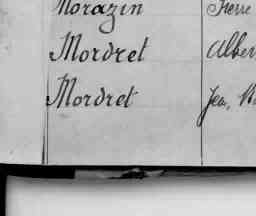 Morazin Pierre
Mordret Alber
Mordret Jean,